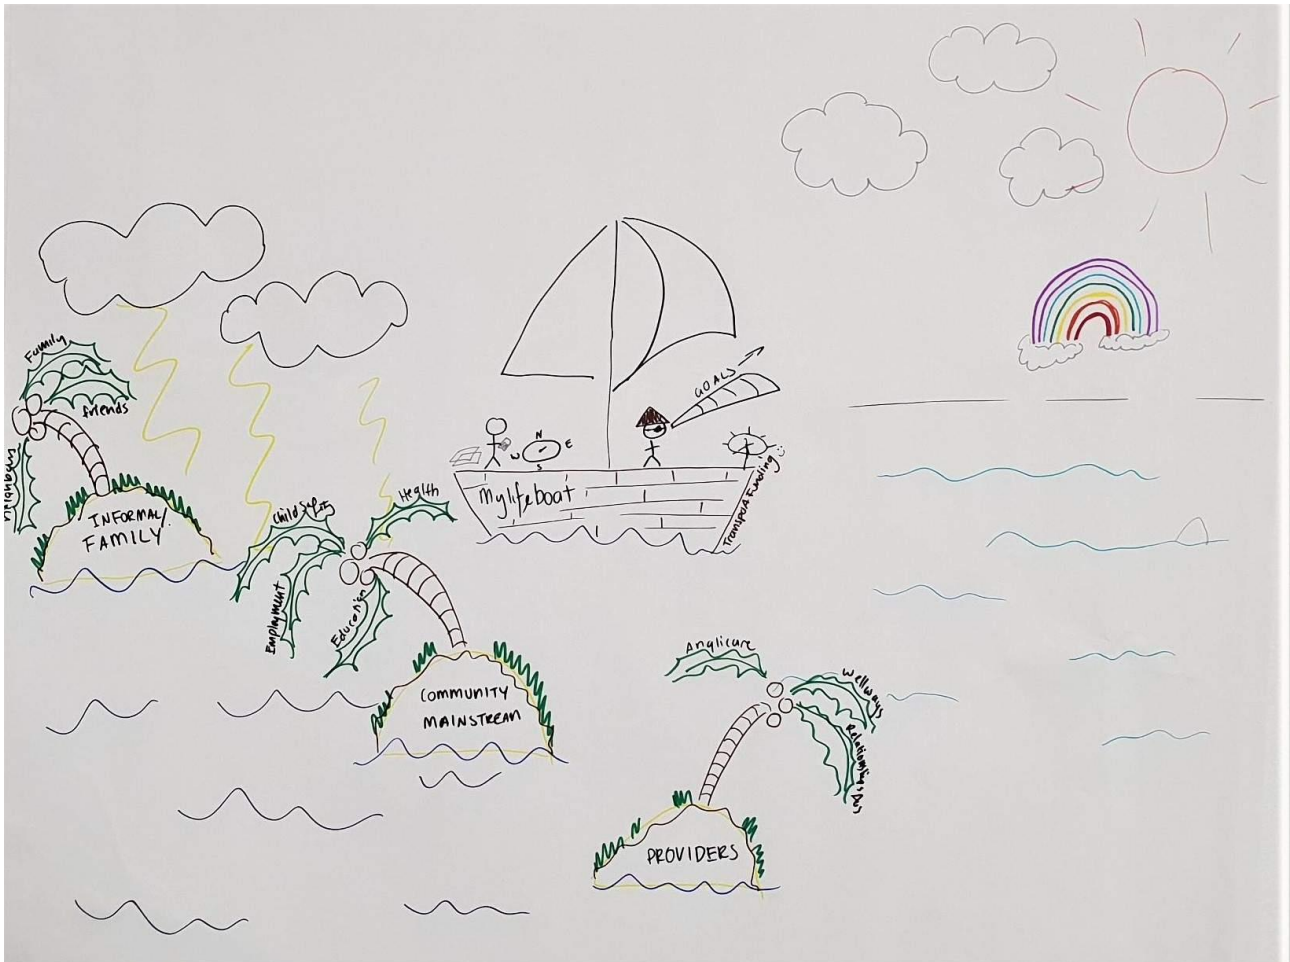 Family
friends
Neighbours
INFORMAL/
FAMILY
Child Safety
Health
Employment
Education
COMMUNITY
MAINSTREAM
GOALS
N
W E
S
Mylifeboat
Transport Funding
Anglicare
Wellways
Relationships Aus
PROVIDERS